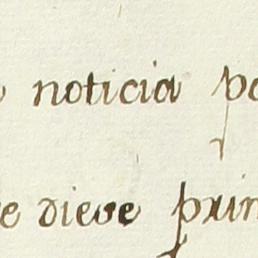 noticia po
e diese prin